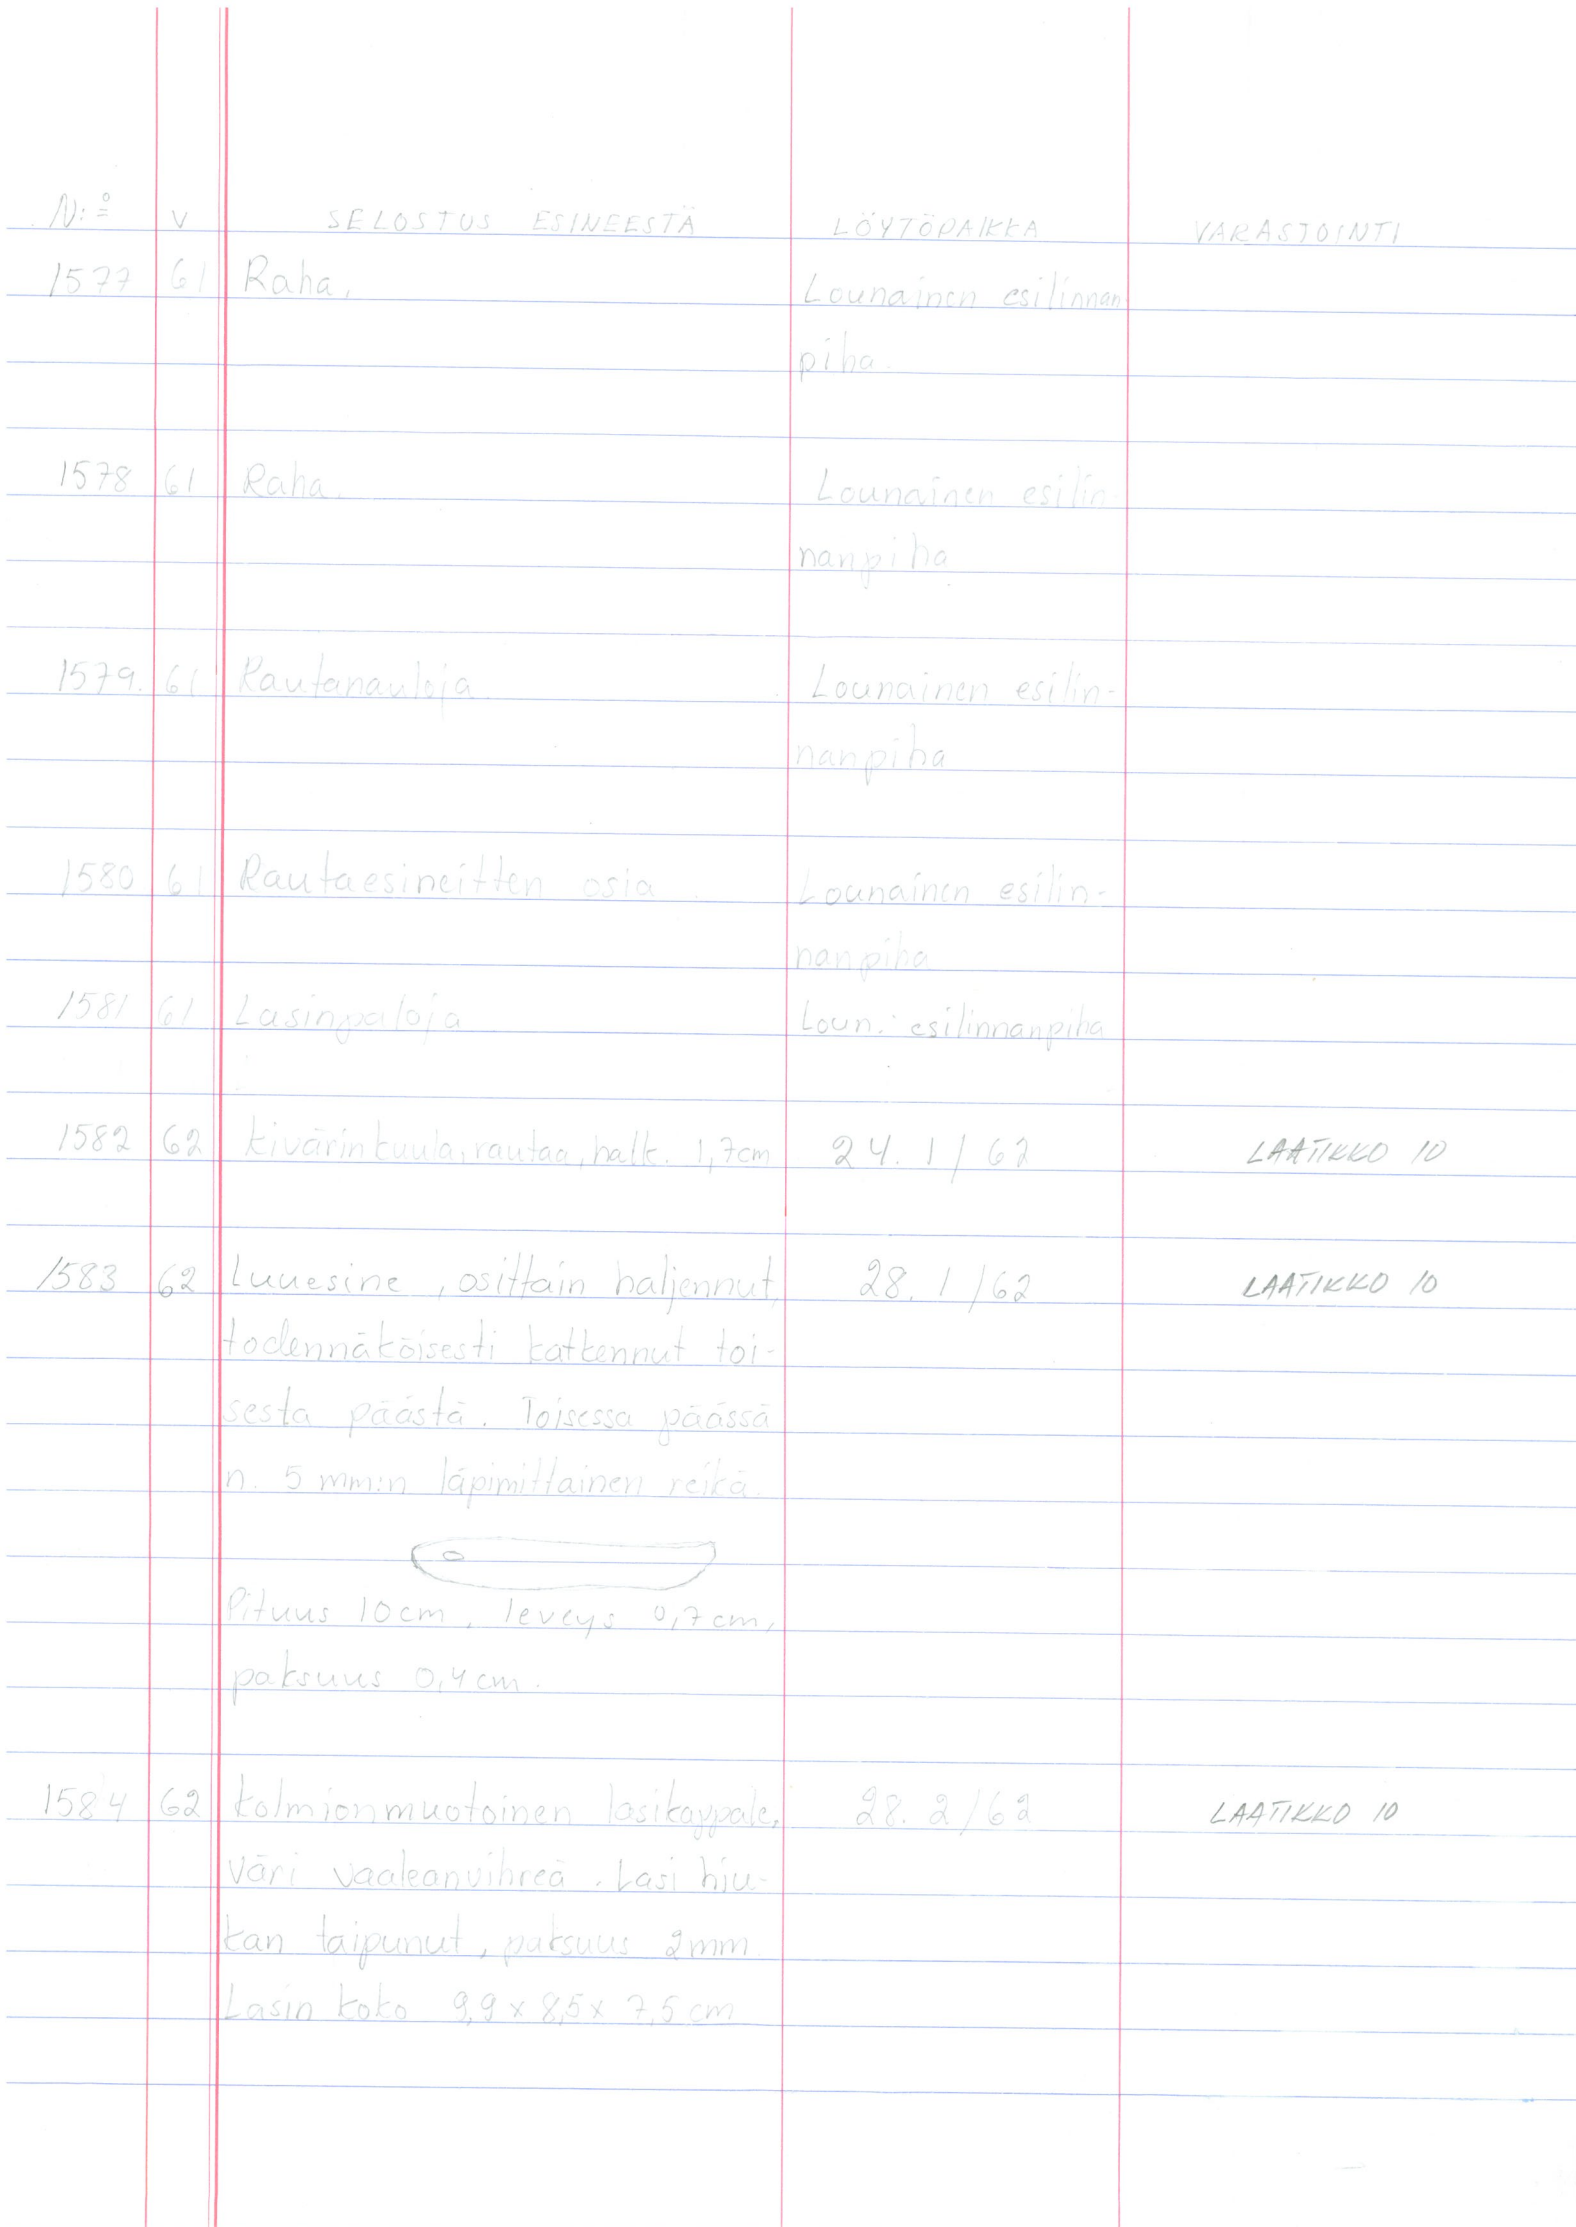 N:o V SELOSTUS ESINEESTÄ LÖYTÖPAIKKA VARASTOINTI
1577 61 Raha, Lounainen esilinnan
piha.
1578 61 Raha. Lounainen esilin-
nanpiha
1579. 61 Rautanauloja. Lounainen esilin-
nanpiha
1580 61 Rautaesineitten osia. Lounainen esilin-
nanpiha
1581 61 Lasinpaloja Loun. esilinnanpiha
1582 62 Kivärinkuula, rautaa, halk. 1,7cm 24. 1/62 LAATIKKO 10
1583 62 Luuesine, osittain haljennut, 28. 1/62 LAATIKKO 10
todennäköisesti katkennut toi-
sesta päästä. Toisessa päässä
n. 5 mm:n läpimittainen reikä.
Pituus 10cm, leveys 0,7cm,
paksuus 0,4cm.
1584 62 Kolmionmuotoinen lasikappale, 28. 2/62 LAATIKKO 10
väri vaaleanvihreä. Lasi hiu-
kan taipunut, paksuus 2mm.
Lasin koko 9,9 x 8,5 x 7,5 cm